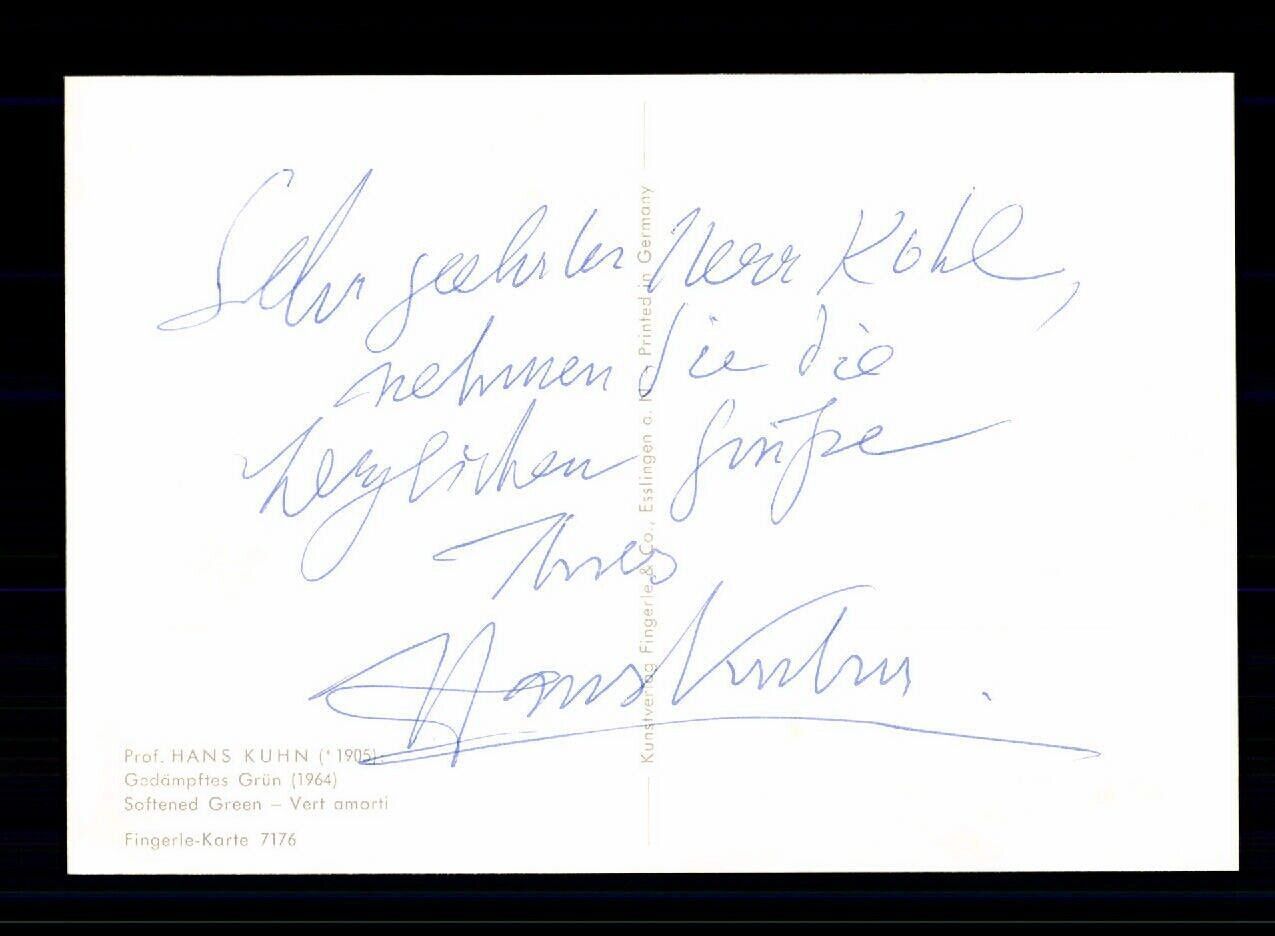 Sehr geehrter Herr Kohl,
nehmen Sie die
herzlichen Grüße
Ihres
Hans Kuhn.
Prof. HANS KUHN (*1905):
Gedämpftes Grün (1964)
Softened Green – Vert amorti
Fingerle-Karte 7176
Kunstverlag Fingerle & Co., Esslingen a. N. – Printed in Germany